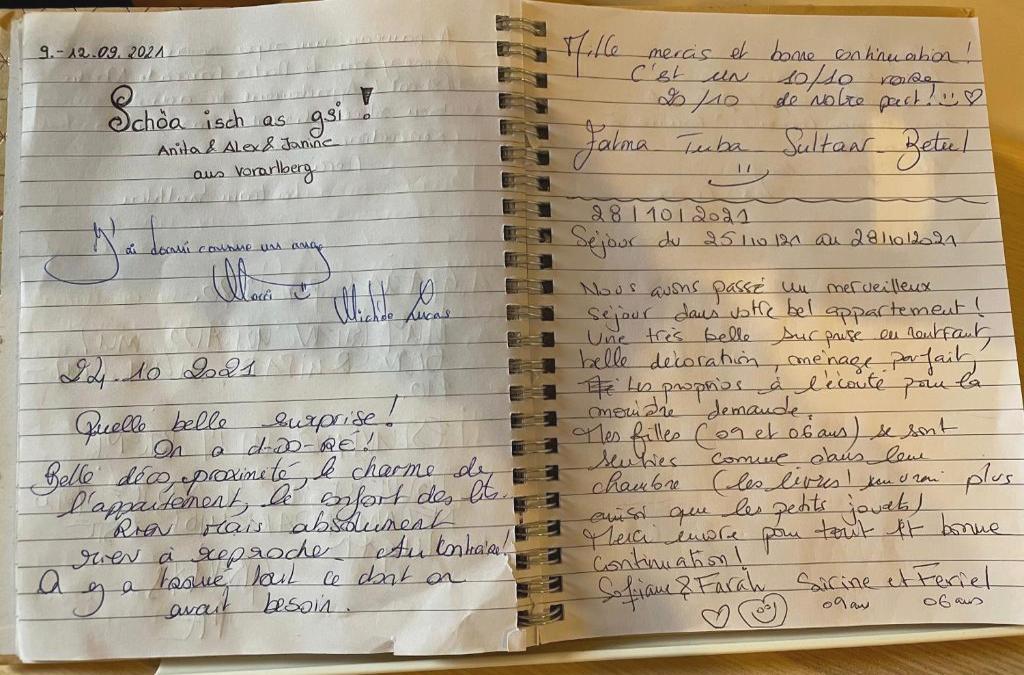 9.-12.09.2021
Schöa isch as gsi!
Anita & Alex & Janine
aus Vorarlberg
J'ai dormi comme un ange
Merci
Lucas
22.10 2021
Quelle belle surprise!
On a a-do-ré!
Belle déco, proximité, le charme de
l'appartement, le confort des lits.
Rien mais absolument
rien à reproche. Au contraire!
On y a trouvé tout ce dont on
avait besoin.
Mille mercis et bonne continuation!
C'est un 10/10 voire
20/10 de notre part! :) ♡
Fatma Tuba Sultan Betul
28/10/2021
Séjour du 25/10/21 au 28/10/2021
Nous avons passé un merveilleux
séjour dans votre bel appartement!
Une très belle surprise en rentrant,
belle décoration, ménage parfait,
Les proprios à l'écoute pour la
moindre demande.
Mes filles (09 et 06 ans) se sont
senties comme dans leur
chambre (les livres! un vrai plus
ainsi que les petits jouets)
Merci encore pour tout et bonne
continuation!
Sofiane & Farah Sirine et Feriel
09 ans 06 ans